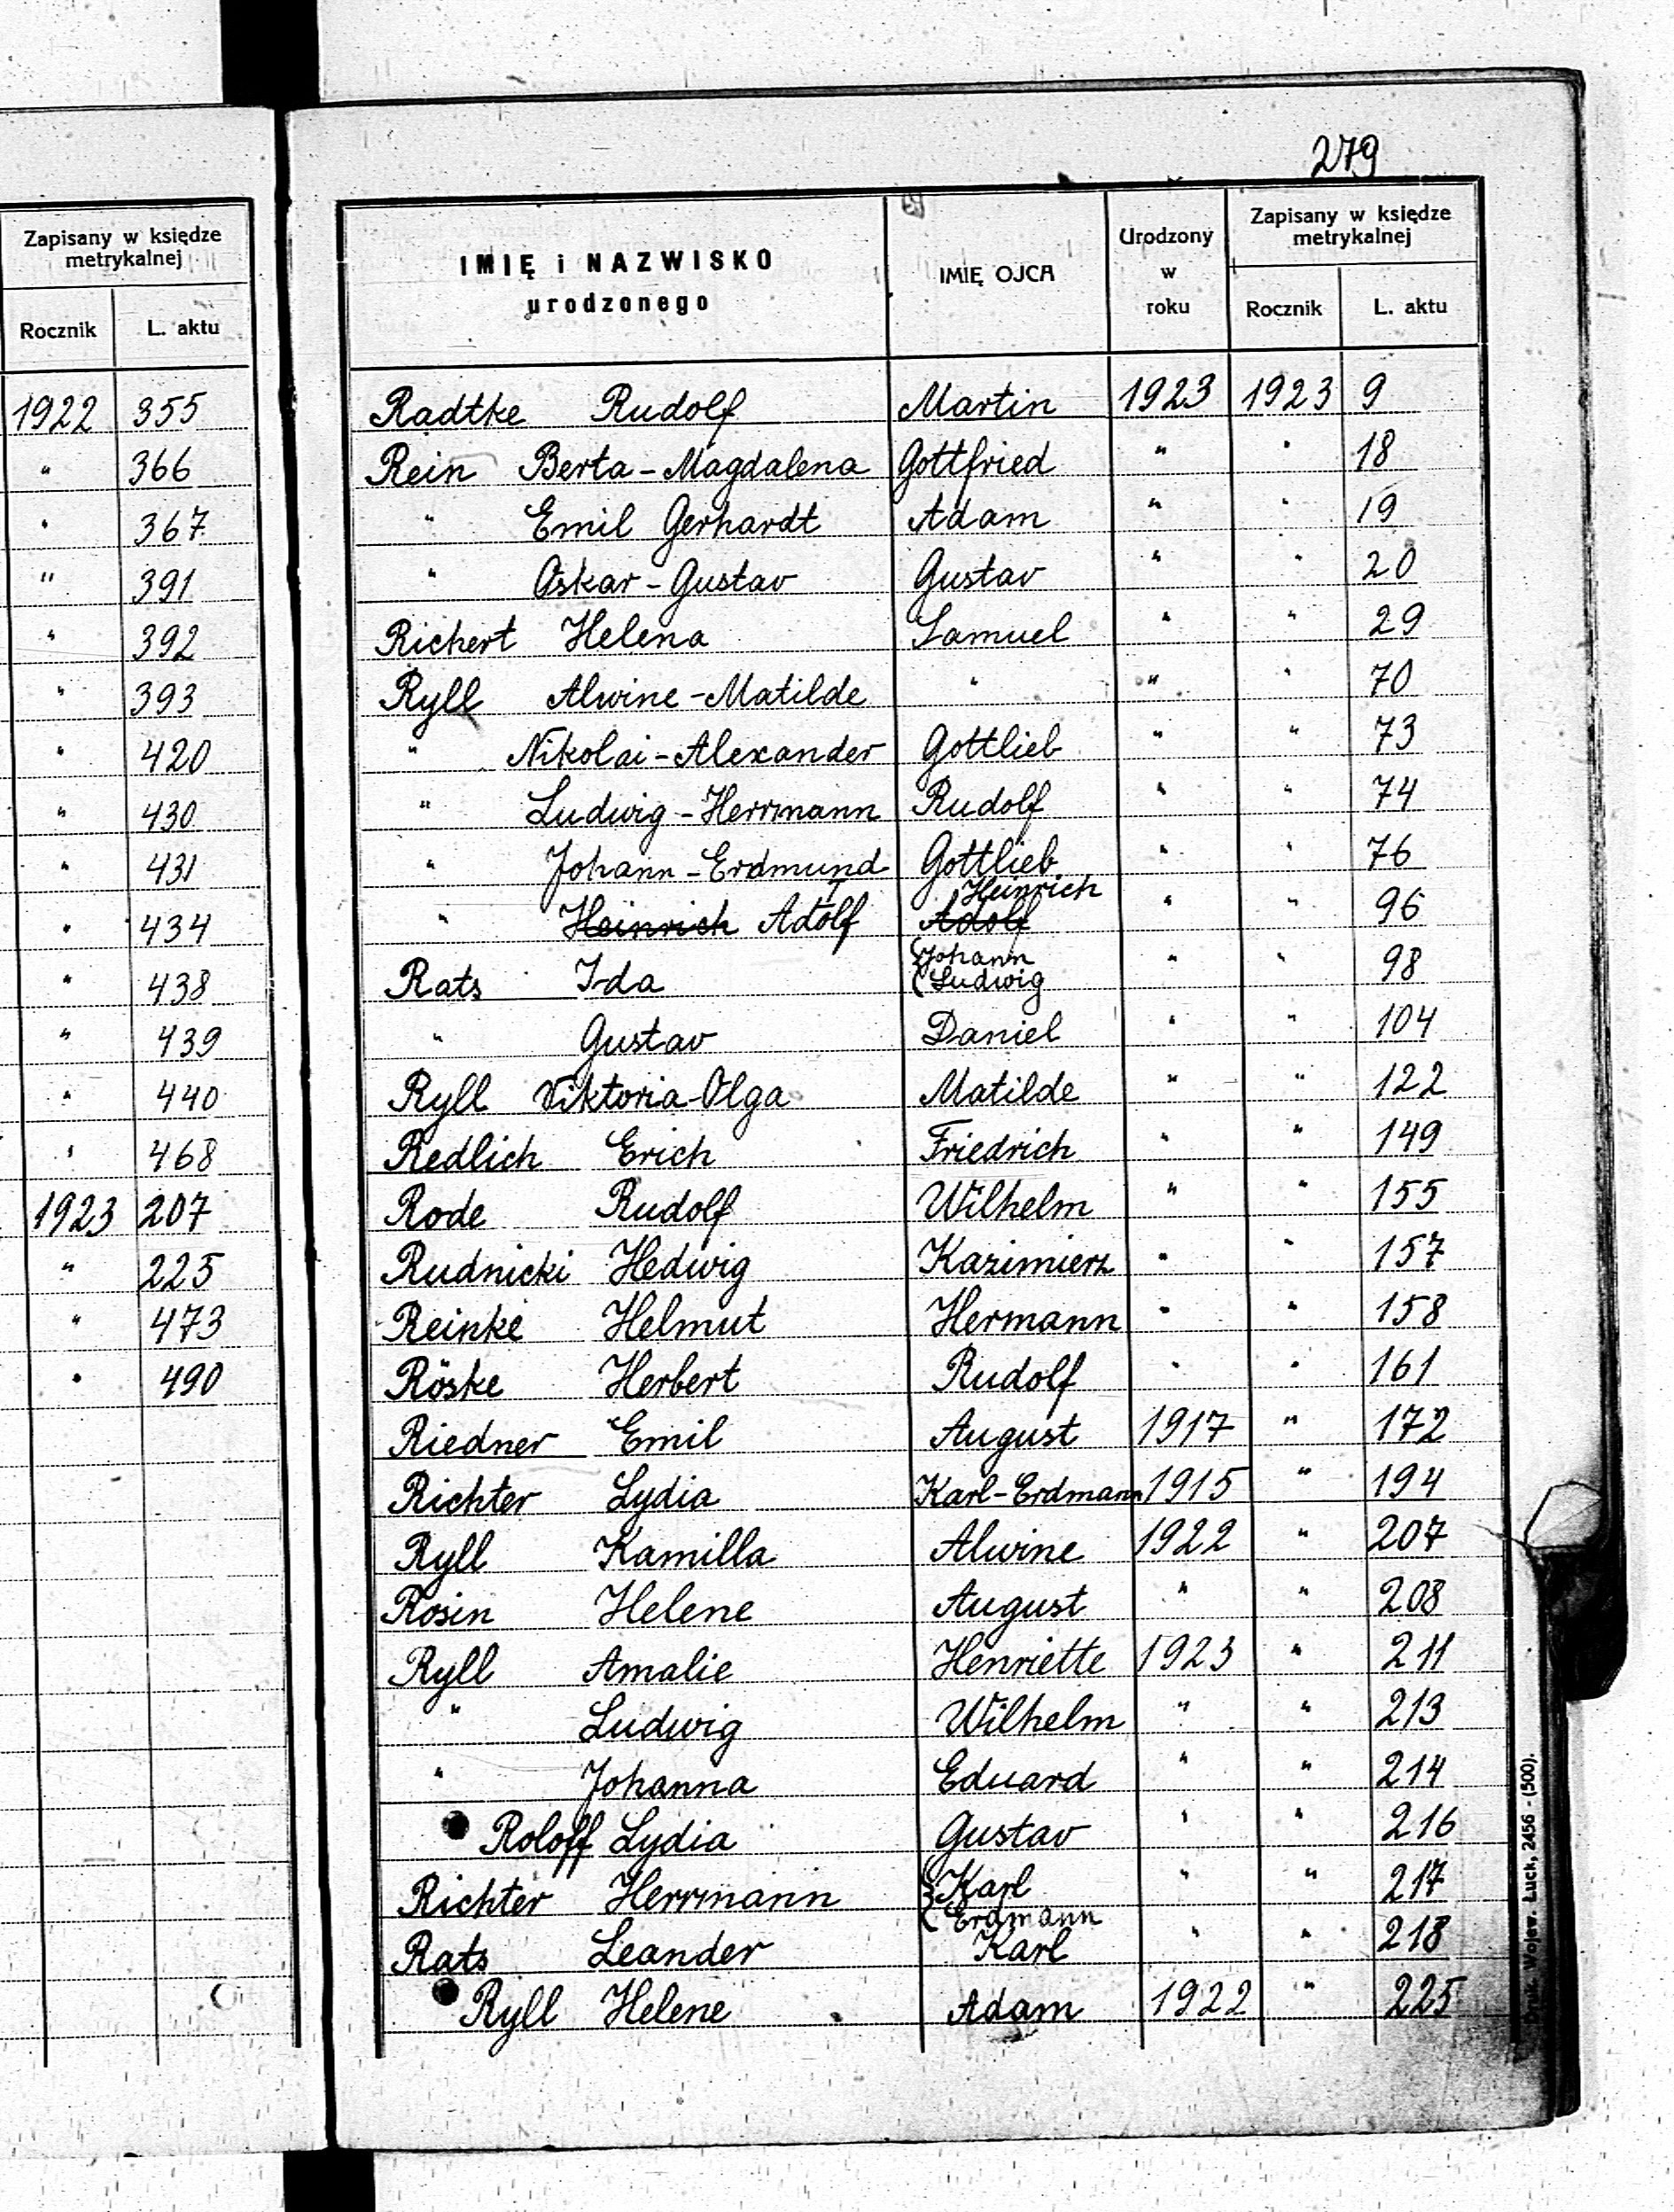 Zapisany w księdze
metrykalnej
Rocznik L. aktu
1922 355
" 366
" 367
" 391
" 392
" 393
" 420
" 430
" 431
" 434
" 438
" 439
" 440
" 468
1923 207
" 225
" 473
" 490
279
IMIĘ i NAZWISKO
urodzonego
IMIĘ OJCA
Urodzony
w
roku
Zapisany w księdze
metrykalnej
Rocznik L. aktu
Radtke Rudolf Martin 1923 1923 9
Rein Berta-Magdalena Gottfried " " 18
" Emil Gerhardt Adam " " 19
" Oskar-Gustav Gustav " " 20
Richert Helena Samuel " " 29
Ryll Alwine-Matilde " " " 70
" Nikolai-Alexander Gottlieb " " 73
" Ludwig-Herrmann Rudolf " " 74
" Johann-Erdmund Gottlieb " " 76
Heinrich
" Heinrich Adolf Adolf " " 96
Johann
Rats Ida Ludwig " " 98
" Gustav Daniel " " 104
Ryll Viktoria-Olga Matilde " " 122
Redlich Erich Friedrich " " 149
Rode Rudolf Wilhelm " " 155
Rudnicki Hedwig Kazimierz " " 157
Reinke Helmut Hermann " " 158
Röske Herbert Rudolf " " 161
Riedner Emil August 1917 " 172
Richter Lydia Karl-Erdmann 1915 " 194
Ryll Kamilla Alwine 1922 " 207
Rosin Helene August " " 208
Ryll Amalie Henriette 1923 " 211
" Ludwig Wilhelm " " 213
" Johanna Eduard " " 214
Roloff Lydia Gustav " " 216
Richter Herrmann Karl " " 217
Erdmann
Rats Leander Karl " " 218
Ryll Helene Adam 1922 " 225
Druk. Wojew. Łuck, 2456 - (500).